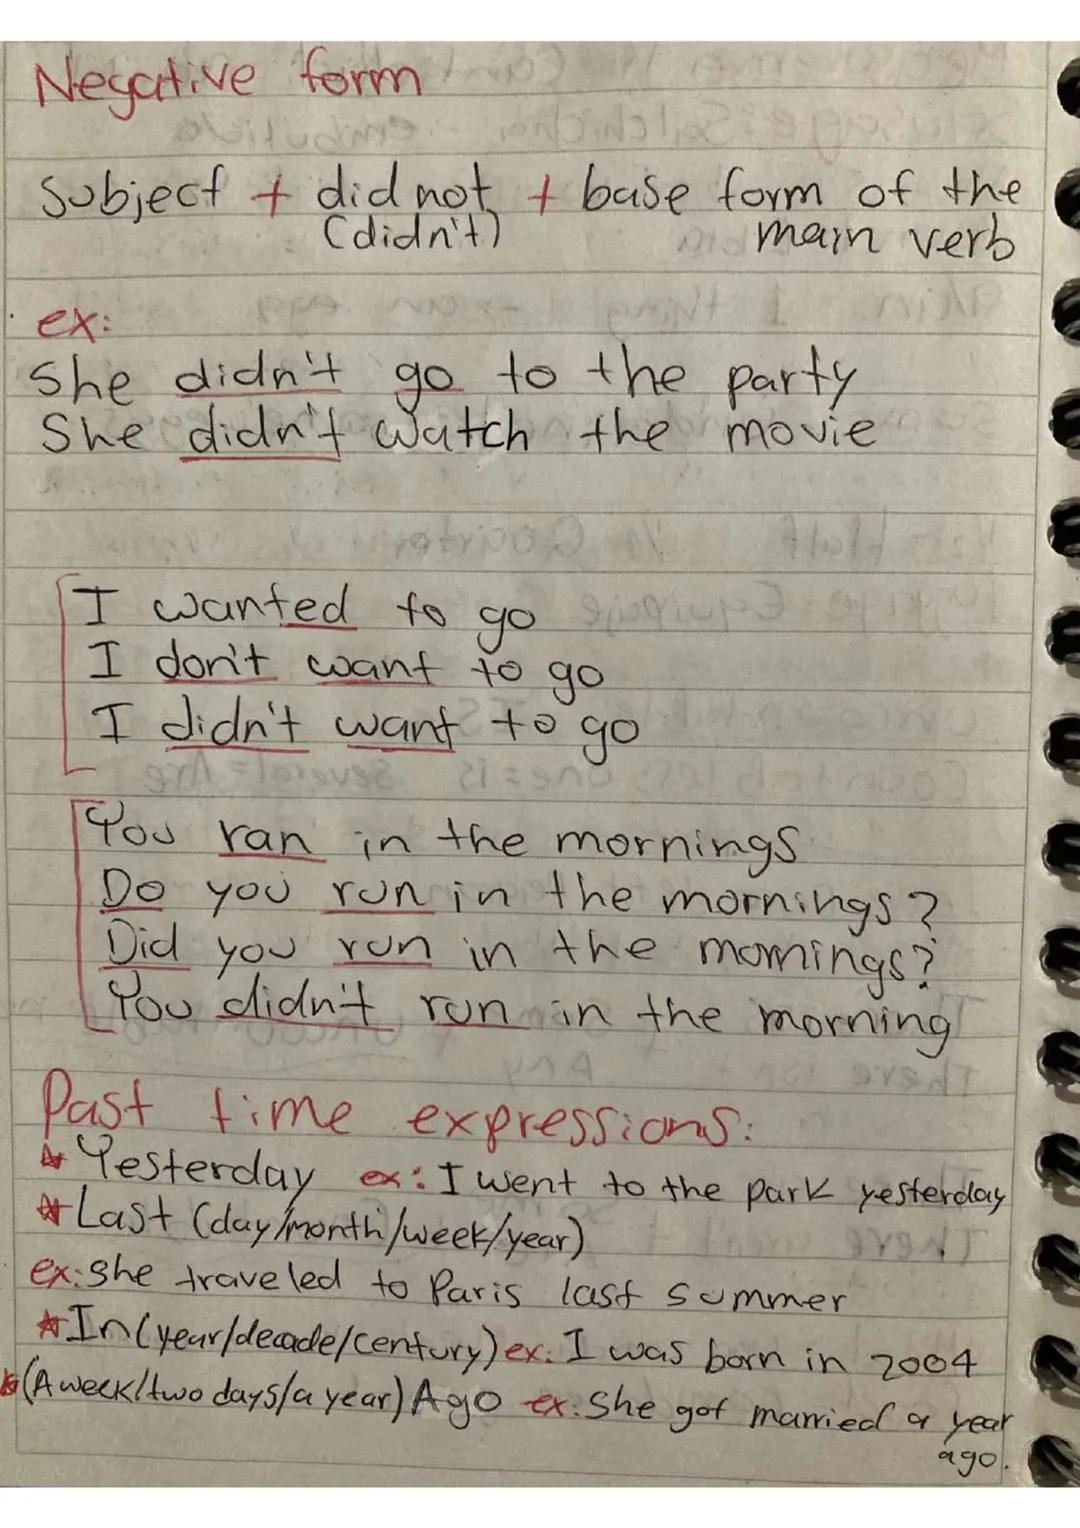 Negative form
Subject + did not + base form of the
(didn't) main verb
ex:
She didn't go to the party
She didn't watch the movie
I wanted to go
I don't want to go
I didn't want to go
You ran in the mornings
Do you run in the mornings?
Did you run in the mornings?
You didn't run in the morning
Past time expressions:
Yesterday ex: I went to the park yesterday
Last (day/month/week/year)
ex: she traveled to Paris last summer
In (year/decade/century) ex: I was born in 2004
(A week/two days/a year) Ago ex: She got married a year
ago.